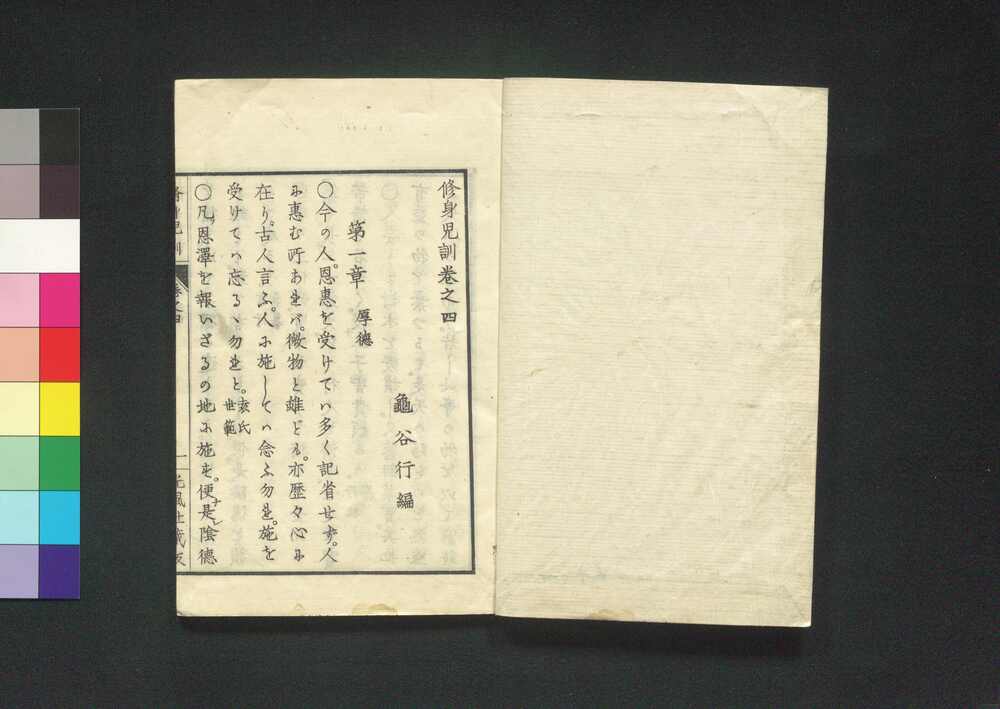 修身児訓巻之四
龜谷行編
第一章 厚德
○今の人。恩惠を受けてハ多く記省せず。人
に惠む所あれバ。微物と雖ども。亦歷々心に
在り。古人言ふ。人に施してハ念ふ勿れ。施を
受けてハ忘るゝ勿れと。袁氏世範
○凡ソ恩澤を報いざるの地に施す。便是レ陰德
修身児訓 巻之四 一 光風社蔵板